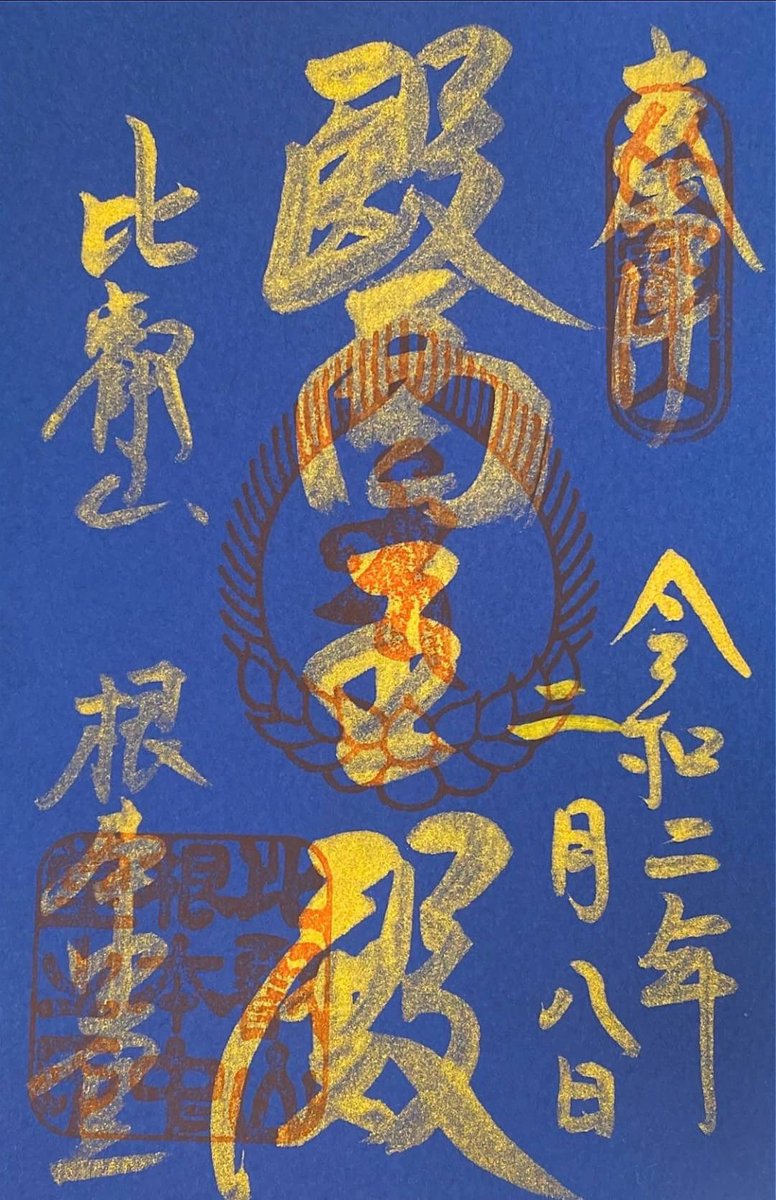 奉拝
令和二年
二月八日
醫王殿
比叡山
根本中堂
比叡山
根本中
堂之印